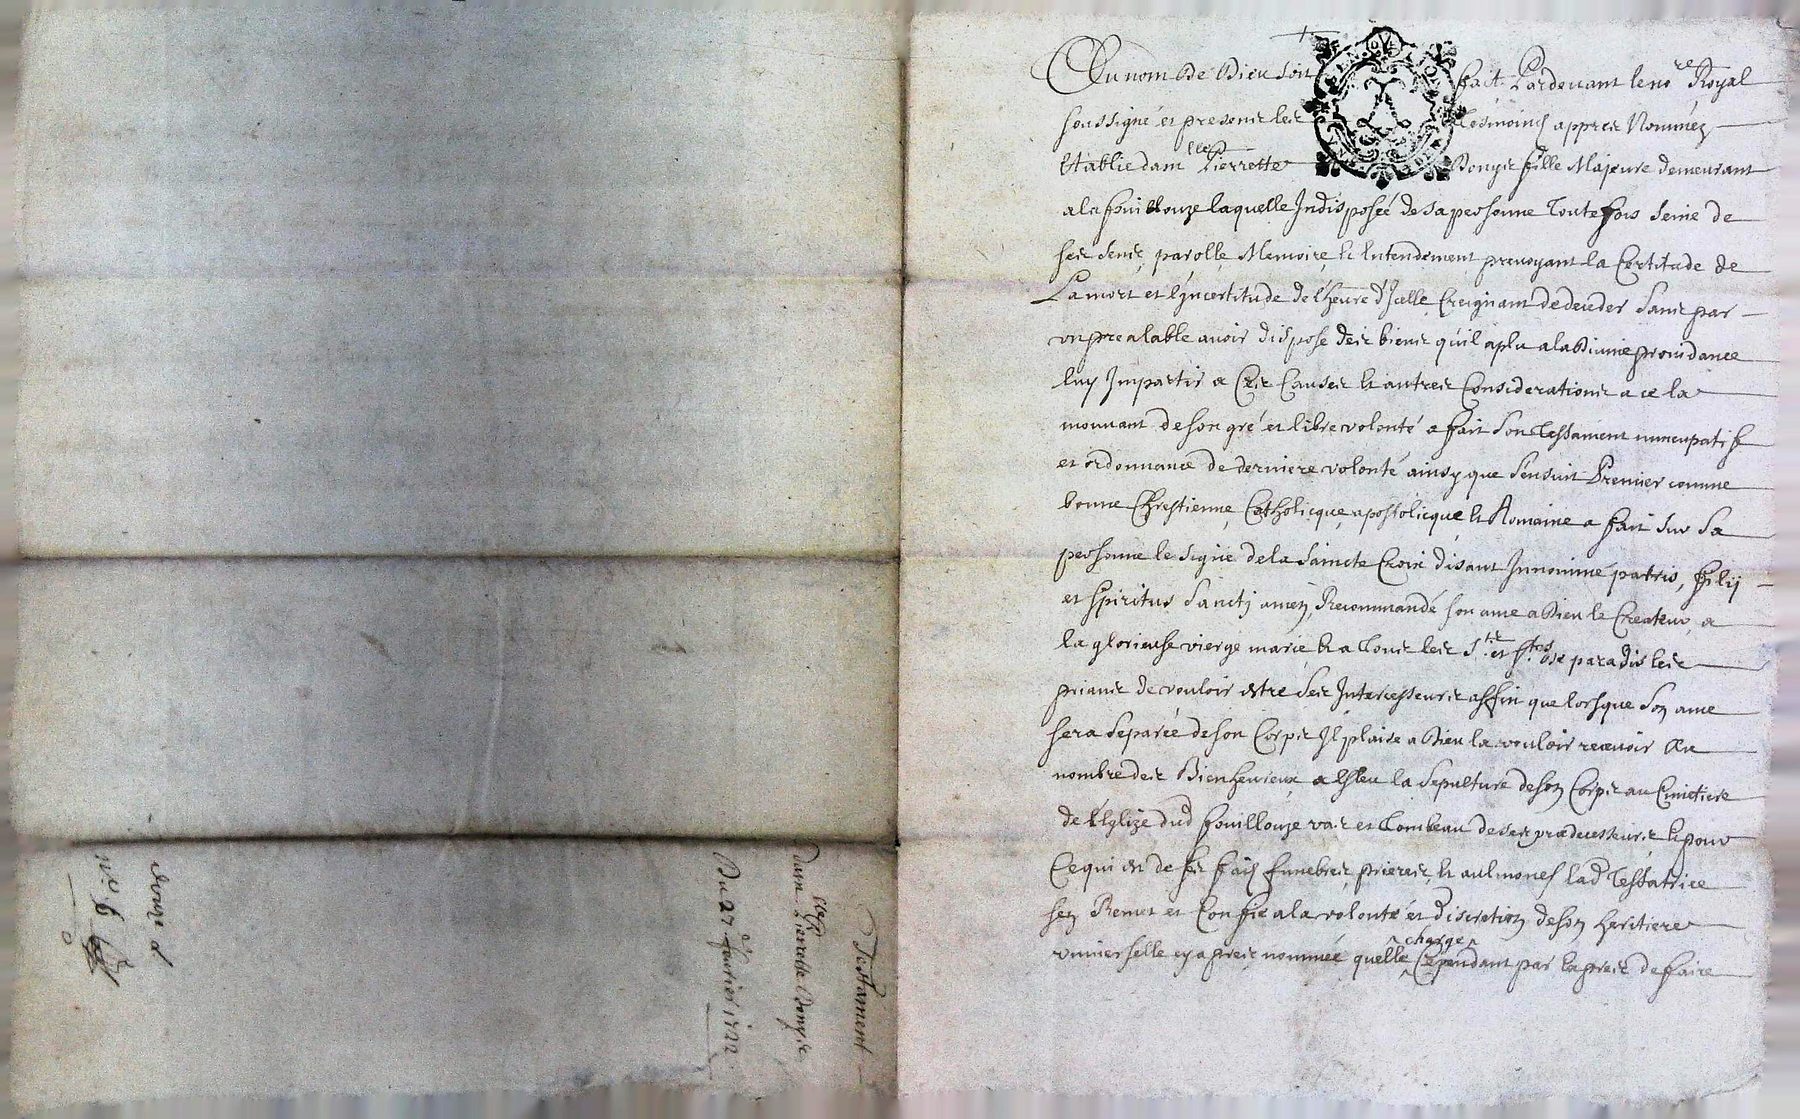 Au nom de Dieu soit fait Pardevant le no.re Royal
soussigné et presents les Tesmoins appres Nommez
Establie dam.lle Pierrette Donys fille Majeure demeurant
a la fouillouze laquelle Indisposeé de sa personne Toutefois seine de
ses sens, parolle, Memoire, et Entendement prevoyant la Certitude de
La mort et l'Incertitude de l'heure d'Icelle Creignant de deceder sans par
un prealable avoir dispose des biens qu'il a plu a la Divine providance
luy Impartir a Ces Causes et autres Considerations a ce la
mouvant de son gré et libre volonté a fait son Testament nuncupatif
et ordonnance de derniere volonté ainsy que sensuit Premier comme
bonne Chrestienne, Catholicque, apostolicque et Romaine a fait sur sa
personne le signe de la saincte Croix disant Innomine patris, filij
et spiritus sancti amen, Recommandé son ame a Dieu le Createur, a
la glorieuse vierge marie et a Tous les S.ts et S.tes de paradis les
priant de vouloir estre ses Intercesseurs affin que lorsque son ame
sera separeé de son Corps Il plaise a Dieu la vouloir recevoir au
nombre des Bienheureux a Esleu la sepulture de son Corps au Cimetiere
de l'Eglize dud fouillouze vas et Tombeau de ses predecesseurs et pour
Ce qui est de ses frais funebres, prieres, et aulmones lad Testatrice
sen Remet et Confie a la volonté et discretion de son heritiere
universelle cy apres nommeé quelle charge Cependant par Expres de faire
Testament
dam.lle Pierrette Donys
Du 27.e fevrier 1722
n.o 6